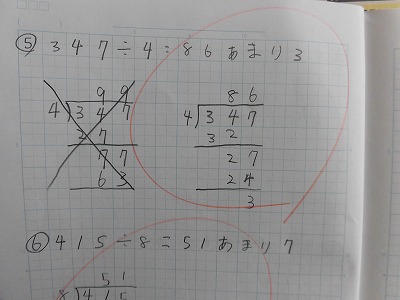 ⑤ 347÷4=86あまり3
99
4)347
37
77
63
86
4)347
32
27
24
3
⑥ 415÷8=51あまり7
51
8)415